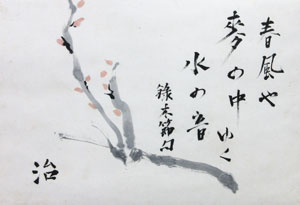 春風や
麥の中ゆく
水の音
録木導句
治